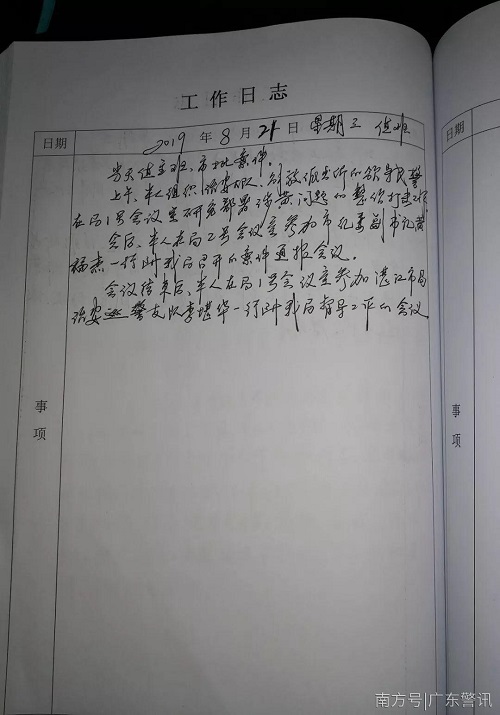 工作日志
日期
2019 年 8 月 21 日 星期三 值班
当天值主班、审批案件。
上午、本人组织治安大队、解放派出所的领导民警
在局1号会议室研究部署涉黄问题的整治打击工作
会后、本人在局2号会议室参加市纪委副书记黄
杨杰一行到我局召开的案件通报会议。
会议结束后、本人在局1号会议室参加湛江市局
治安巡警支队李堪华一行到我局督导工作的会议
事项
事项
南方号|广东警讯